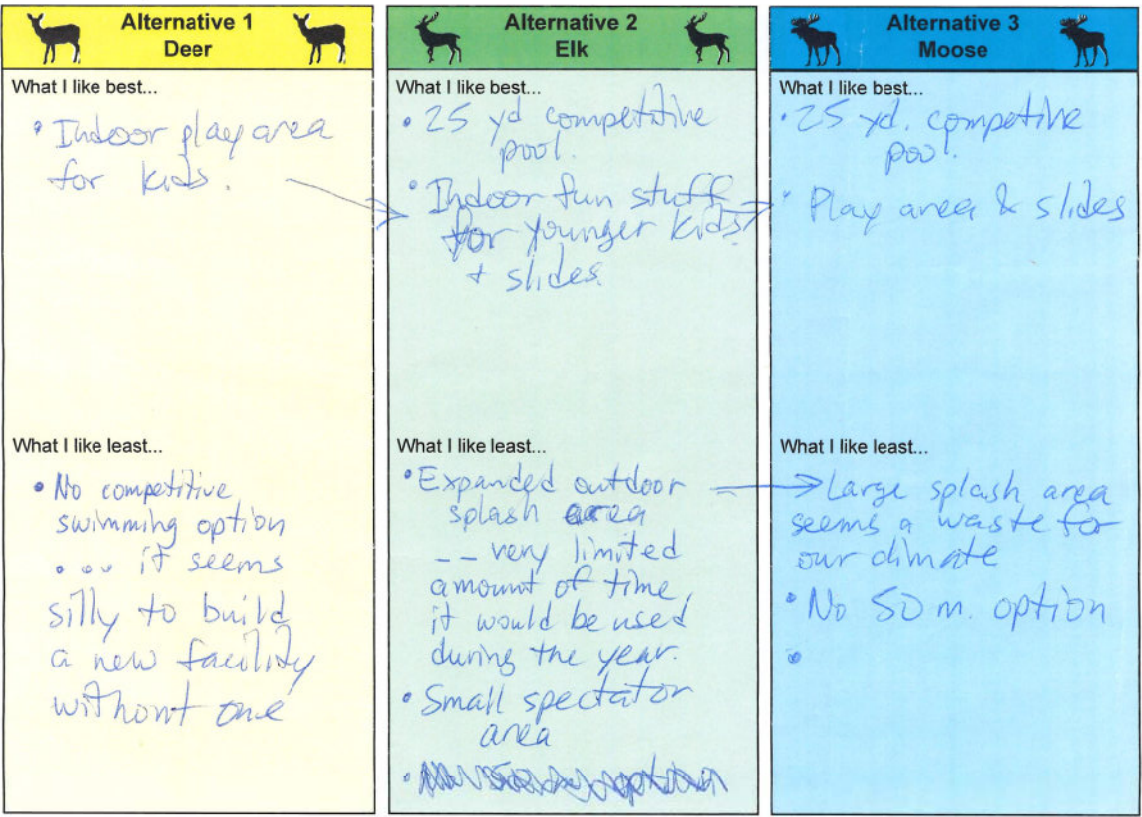 Alternative 1
Deer
What I like best...
• Indoor play area
for kids.
What I like least...
• No competitive
swimming option
... it seems
silly to build
a new facility
without one
Alternative 2
Elk
What I like best...
• 25 yd competitive
pool.
• Indoor fun stuff
for younger kids
+ slides.
What I like least...
• Expanded outdoor
splash area
-- very limited
amount of time,
it would be used
during the year.
• Small spectator
area
•
Alternative 3
Moose
What I like best...
• 25 yd. competive
pool.
• Play area & slides
What I like least...
Large splash area
seems a waste for
our climate
• No 50 m. option
•